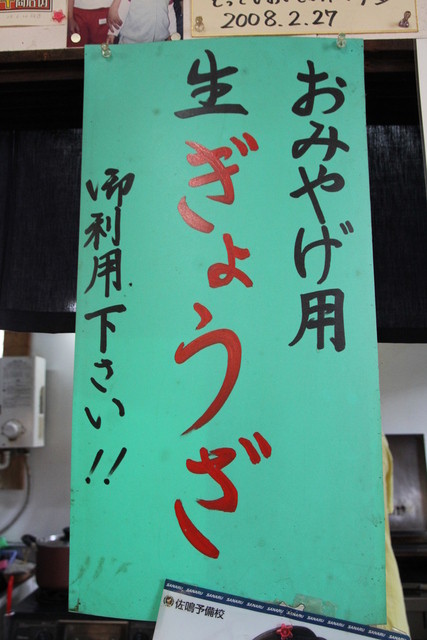 2008.2.27
おみやげ用
生ぎょうざ
御利用下さい!!
SANARU SANARU SANARU SANARU SANARU SANARU
佐鳴予備校